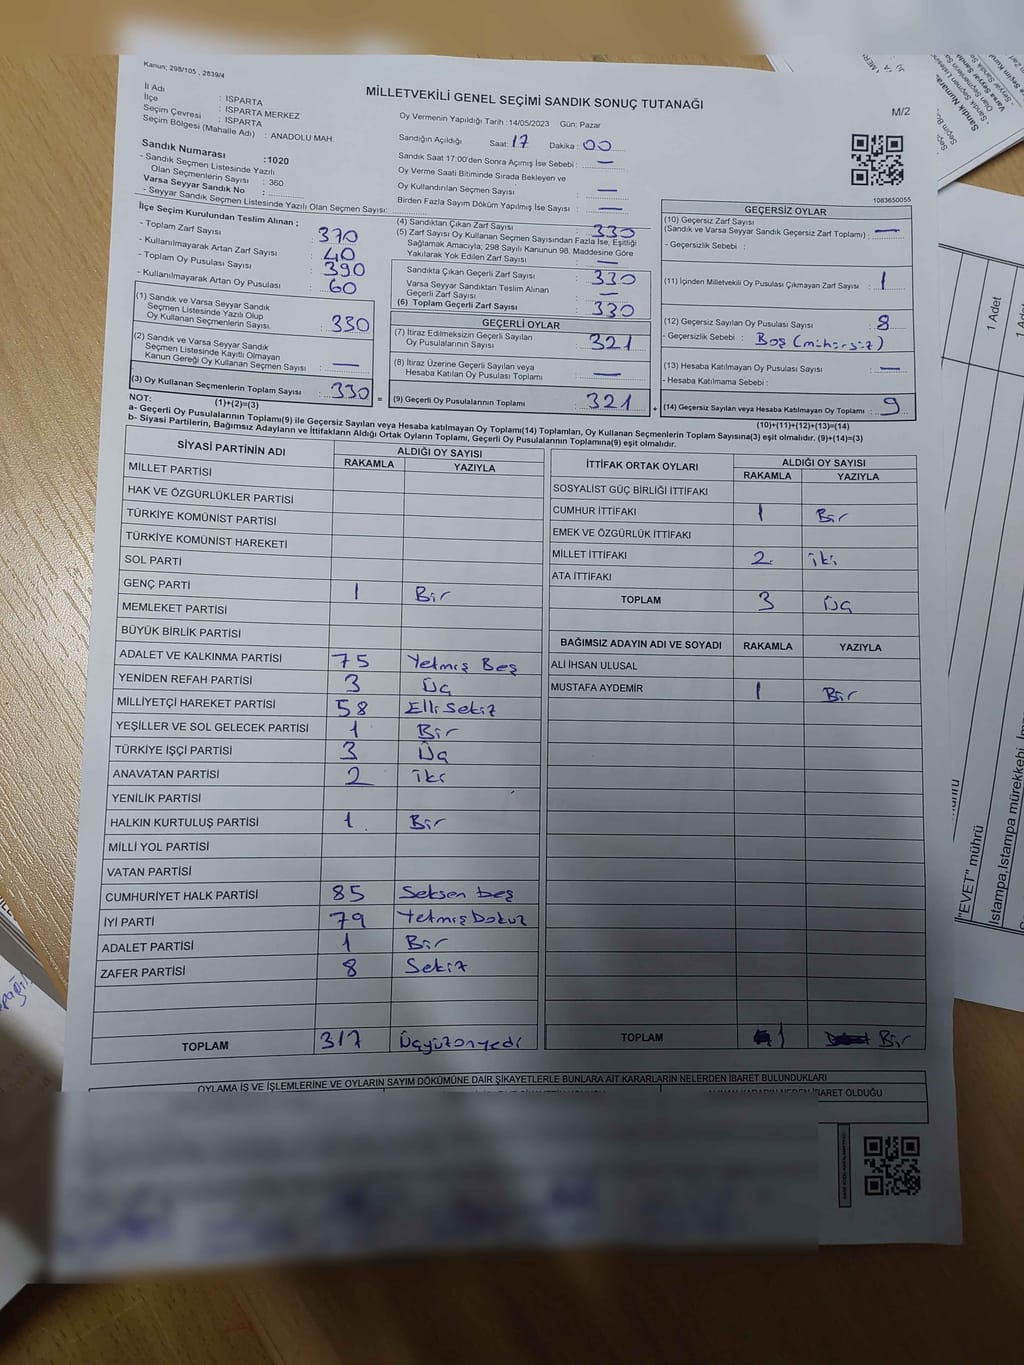 Kanun; 298/105 , 2839/4
MİLLETVEKİLİ GENEL SEÇİMİ SANDIK SONUÇ TUTANAĞI
M/2
İl Adı : ISPARTA
İlçe : ISPARTA MERKEZ
Seçim Çevresi : ISPARTA
Seçim Bölgesi (Mahalle Adı) : ANADOLU MAH.
Sandık Numarası :1020
- Sandık Seçmen Listesinde Yazılı
Olan Seçmenlerin Sayısı : 360
Varsa Seyyar Sandık No :
- Seyyar Sandık Seçmen Listesinde Yazılı Olan Seçmen Sayısı:
Oy Vermenin Yapıldığı Tarih :14/05/2023 Gün: Pazar
Sandığın Açıldığı Saat: 17 Dakika : 00
Sandık Saat 17:00'den Sonra Açımış İse Sebebi : —
Oy Verme Saati Bitiminde Sırada Bekleyen ve
Oy Kullandırılan Seçmen Sayısı : —
Birden Fazla Sayım Döküm Yapılmış İse Sayısı : —
1083650055
İlçe Seçim Kurulundan Teslim Alınan ;
- Toplam Zarf Sayısı : 370
- Kullanılmayarak Artan Zarf Sayısı : 40
- Toplam Oy Pusulası Sayısı : 390
- Kullanılmayarak Artan Oy Pusulası : 60
(1) Sandık ve Varsa Seyyar Sandık
Seçmen Listesinde Yazılı Olup
Oy Kullanan Seçmenlerin Sayısı. : 330
(2) Sandık ve Varsa Seyyar Sandık
Seçmen Listesinde Kayıtlı Olmayan
Kanun Gereği Oy Kullanan Seçmen Sayısı : —
(3) Oy Kullanan Seçmenlerin Toplam Sayısı : 330
(1)+(2)=(3)
(4) Sandıktan Çıkan Zarf Sayısı : 330
(5) Zarf Sayısı Oy Kullanan Seçmen Sayısından Fazla İse, Eşitliği
Sağlamak Amacıyla; 298 Sayılı Kanunun 98. Maddesine Göre
Yakılarak Yok Edilen Zarf Sayısı : —
Sandıkta Çıkan Geçerli Zarf Sayısı : 330
Varsa Seyyar Sandıktan Teslim Alınan
Geçerli Zarf Sayısı : —
(6) Toplam Geçerli Zarf Sayısı : 330
GEÇERLİ OYLAR
(7) İtiraz Edilmeksizin Geçerli Sayılan
Oy Pusulalarının Sayısı : 321
(8) İtiraz Üzerine Geçerli Sayılan veya
Hesaba Katılan Oy Pusulası Toplamı : —
=
(9) Geçerli Oy Pusulalarının Toplamı : 321
+
GEÇERSİZ OYLAR
(10) Geçersiz Zarf Sayısı
(Sandık ve Varsa Seyyar Sandık Geçersiz Zarf Toplamı) : —
- Geçersizlik Sebebi :
(11) İçinden Milletvekili Oy Pusulası Çıkmayan Zarf Sayısı : 1
(12) Geçersiz Sayılan Oy Pusulası Sayısı : 8
- Geçersizlik Sebebi : Boş (mühürsüz)
(13) Hesaba Katılmayan Oy Pusulası Sayısı : —
- Hesaba Katılmama Sebebi :
(14) Geçersiz Sayılan veya Hesaba Katılmayan Oy Toplamı : 9
(10)+(11)+(12)+(13)=(14)
NOT:
a- Geçerli Oy Pusulaların Toplamı(9) ile Geçersiz Sayılan veya Hesaba Katılmayan Oy Toplamı(14) Toplamları, Oy Kullanan Seçmenlerin Toplam Sayısına(3) eşit olmalıdır. (9)+(14)=(3)
b- Siyasi Partilerin, Bağımsız Adayların ve İttifakların Aldığı Ortak Oyların Toplamı, Geçerli Oy Pusulalarının Toplamına(9) eşit olmalıdır.
SİYASİ PARTİNİN ADI ALDIĞI OY SAYISI
RAKAMLA YAZIYLA
MİLLET PARTİSİ
HAK VE ÖZGÜRLÜKLER PARTİSİ
TÜRKİYE KOMÜNİST PARTİSİ
TÜRKİYE KOMÜNİST HAREKETİ
SOL PARTİ
GENÇ PARTİ 1 Bir
MEMLEKET PARTİSİ
BÜYÜK BİRLİK PARTİSİ
ADALET VE KALKINMA PARTİSİ 75 Yetmiş Beş
YENİDEN REFAH PARTİSİ 3 Üç
MİLLİYETÇİ HAREKET PARTİSİ 58 Elli Sekiz
YEŞİLLER VE SOL GELECEK PARTİSİ 1 Bir
TÜRKİYE İŞÇİ PARTİSİ 3 Üç
ANAVATAN PARTİSİ 2 iki
YENİLİK PARTİSİ
HALKIN KURTULUŞ PARTİSİ 1 Bir
MİLLİ YOL PARTİSİ
VATAN PARTİSİ
CUMHURİYET HALK PARTİSİ 85 Seksen beş
İYİ PARTİ 79 Yetmiş Dokuz
ADALET PARTİSİ 1 Bir
ZAFER PARTİSİ 8 Sekiz
TOPLAM 317 Üçyüzonyedi
İTTİFAK ORTAK OYLARI ALDIĞI OY SAYISI
RAKAMLA YAZIYLA
SOSYALİST GÜÇ BİRLİĞİ İTTİFAKI
CUMHUR İTTİFAKI 1 Bir
EMEK VE ÖZGÜRLÜK İTTİFAKI
MİLLET İTTİFAKI 2 iki
ATA İTTİFAKI
TOPLAM 3 Üç
BAĞIMSIZ ADAYIN ADI VE SOYADI RAKAMLA YAZIYLA
ALİ İHSAN ULUSAL
MUSTAFA AYDEMİR 1 Bir
TOPLAM 1 Bir
OYLAMA İŞ VE İŞLEMLERİNE VE OYLARIN SAYIM DÖKÜMÜNE DAİR ŞİKAYETLERLE BUNLARA AİT KARARLARIN NELERDEN İBARET BULUNDUKLARI
İBARET OLDUĞU
1 Adet
1 Adet
"EVET" mührü
Istampa,Istampa mürekkebi